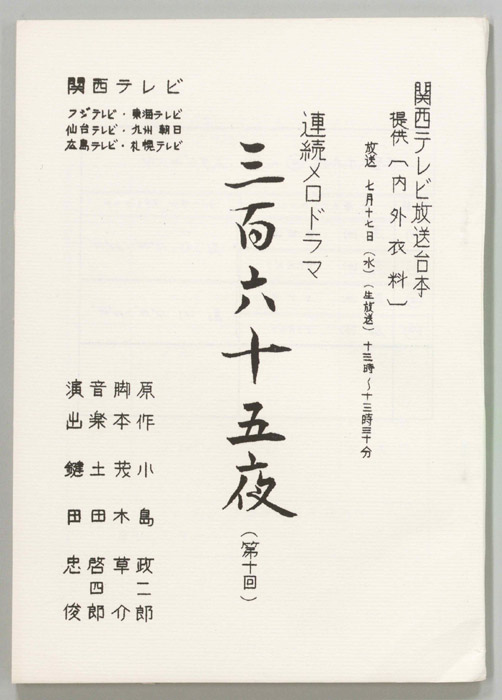 関西テレビ放送台本
提供〔内外衣料〕
放送 七月十七日(水)(生放送)十三時〜十三時三十分
連続メロドラマ
三百六十五夜
(第十回)
関西テレビ
フジテレビ・東海テレビ
仙台テレビ・九州朝日
広島テレビ・札幌テレビ
原作 小島政二郎
脚本 茂木草介
音楽 土田啓四郎
演出 鍵田忠俊